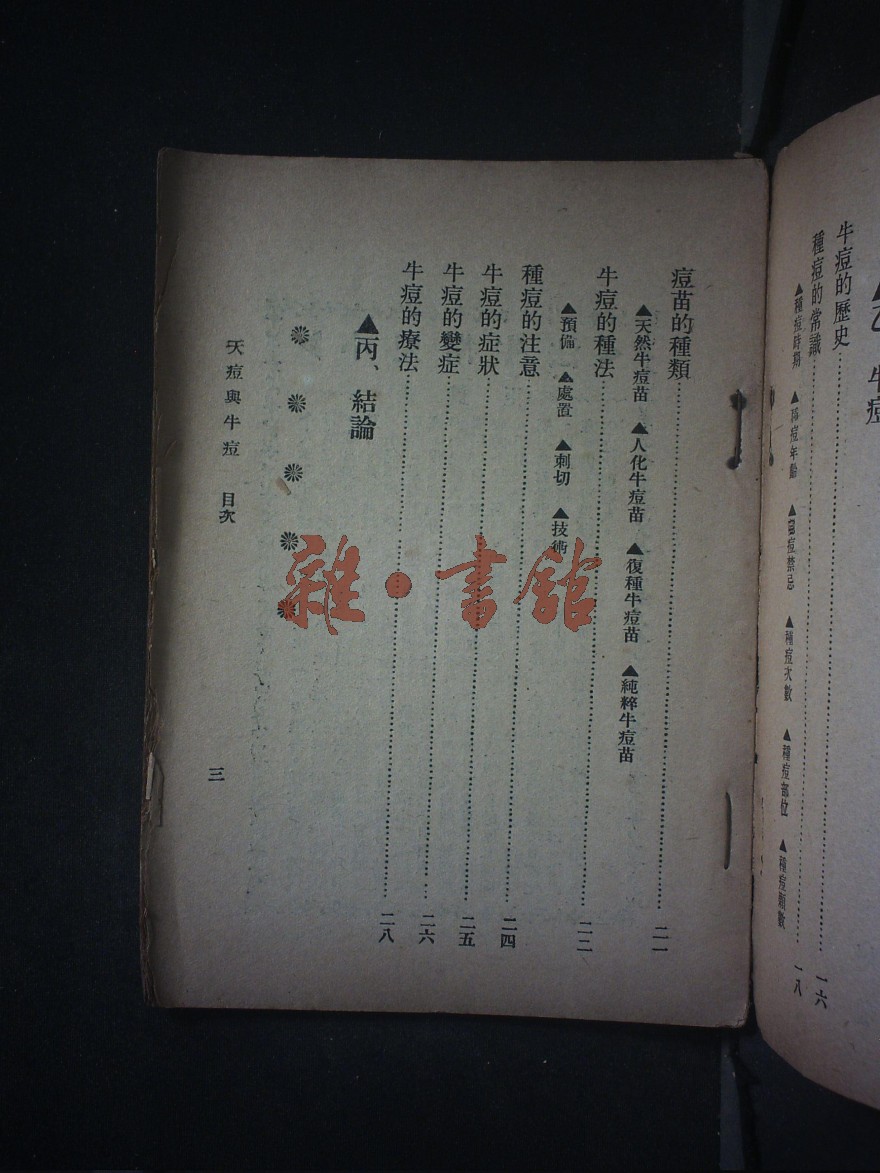 ▲乙 牛痘
牛痘的歷史……一六
種痘的常識……一八
▲種痘時期 ▲種痘年齡 ▲種痘禁忌 ▲種痘次數 ▲種痘部位 ▲種痘顆數
痘苗的種類……二一
▲天然牛痘苗 ▲人化牛痘苗 ▲復種牛痘苗 ▲純粹牛痘苗
牛痘的種法……二二
▲預備 ▲處置 ▲刺切 ▲技術
種痘的注意……二四
牛痘的症狀……二五
牛痘的變症……二六
牛痘的療法……二八
▲丙、結論
天痘與牛痘 目次
三
雜·書舘